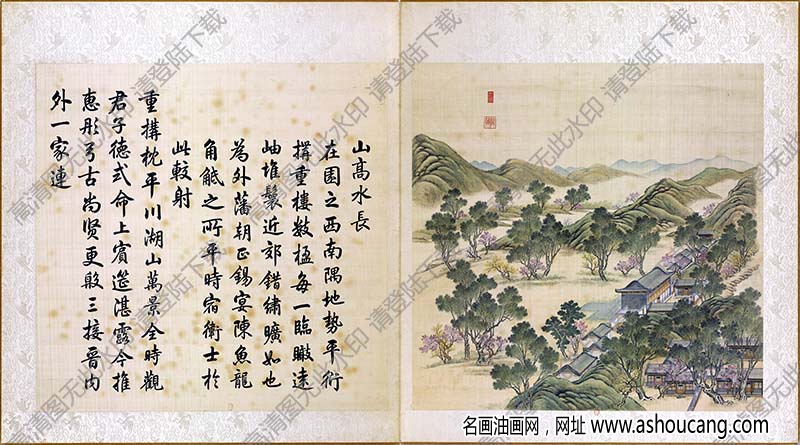 山高水長
在園之西南隅地勢平衍
搆重樓數楹每一臨瞰遠
岫堆鬟近郊錯繡曠如也
為外藩朝正錫宴陳魚龍
角觝之所平時宿衛士於
此較射
重搆枕平川湖山萬景全時觀
君子德式命上賓筵湛露今推
惠彤弓古尚賢更殷三接晉內
外一家連
高清图无此水印 请登陆下载
名画油画网，网址 www.ashoucang.com